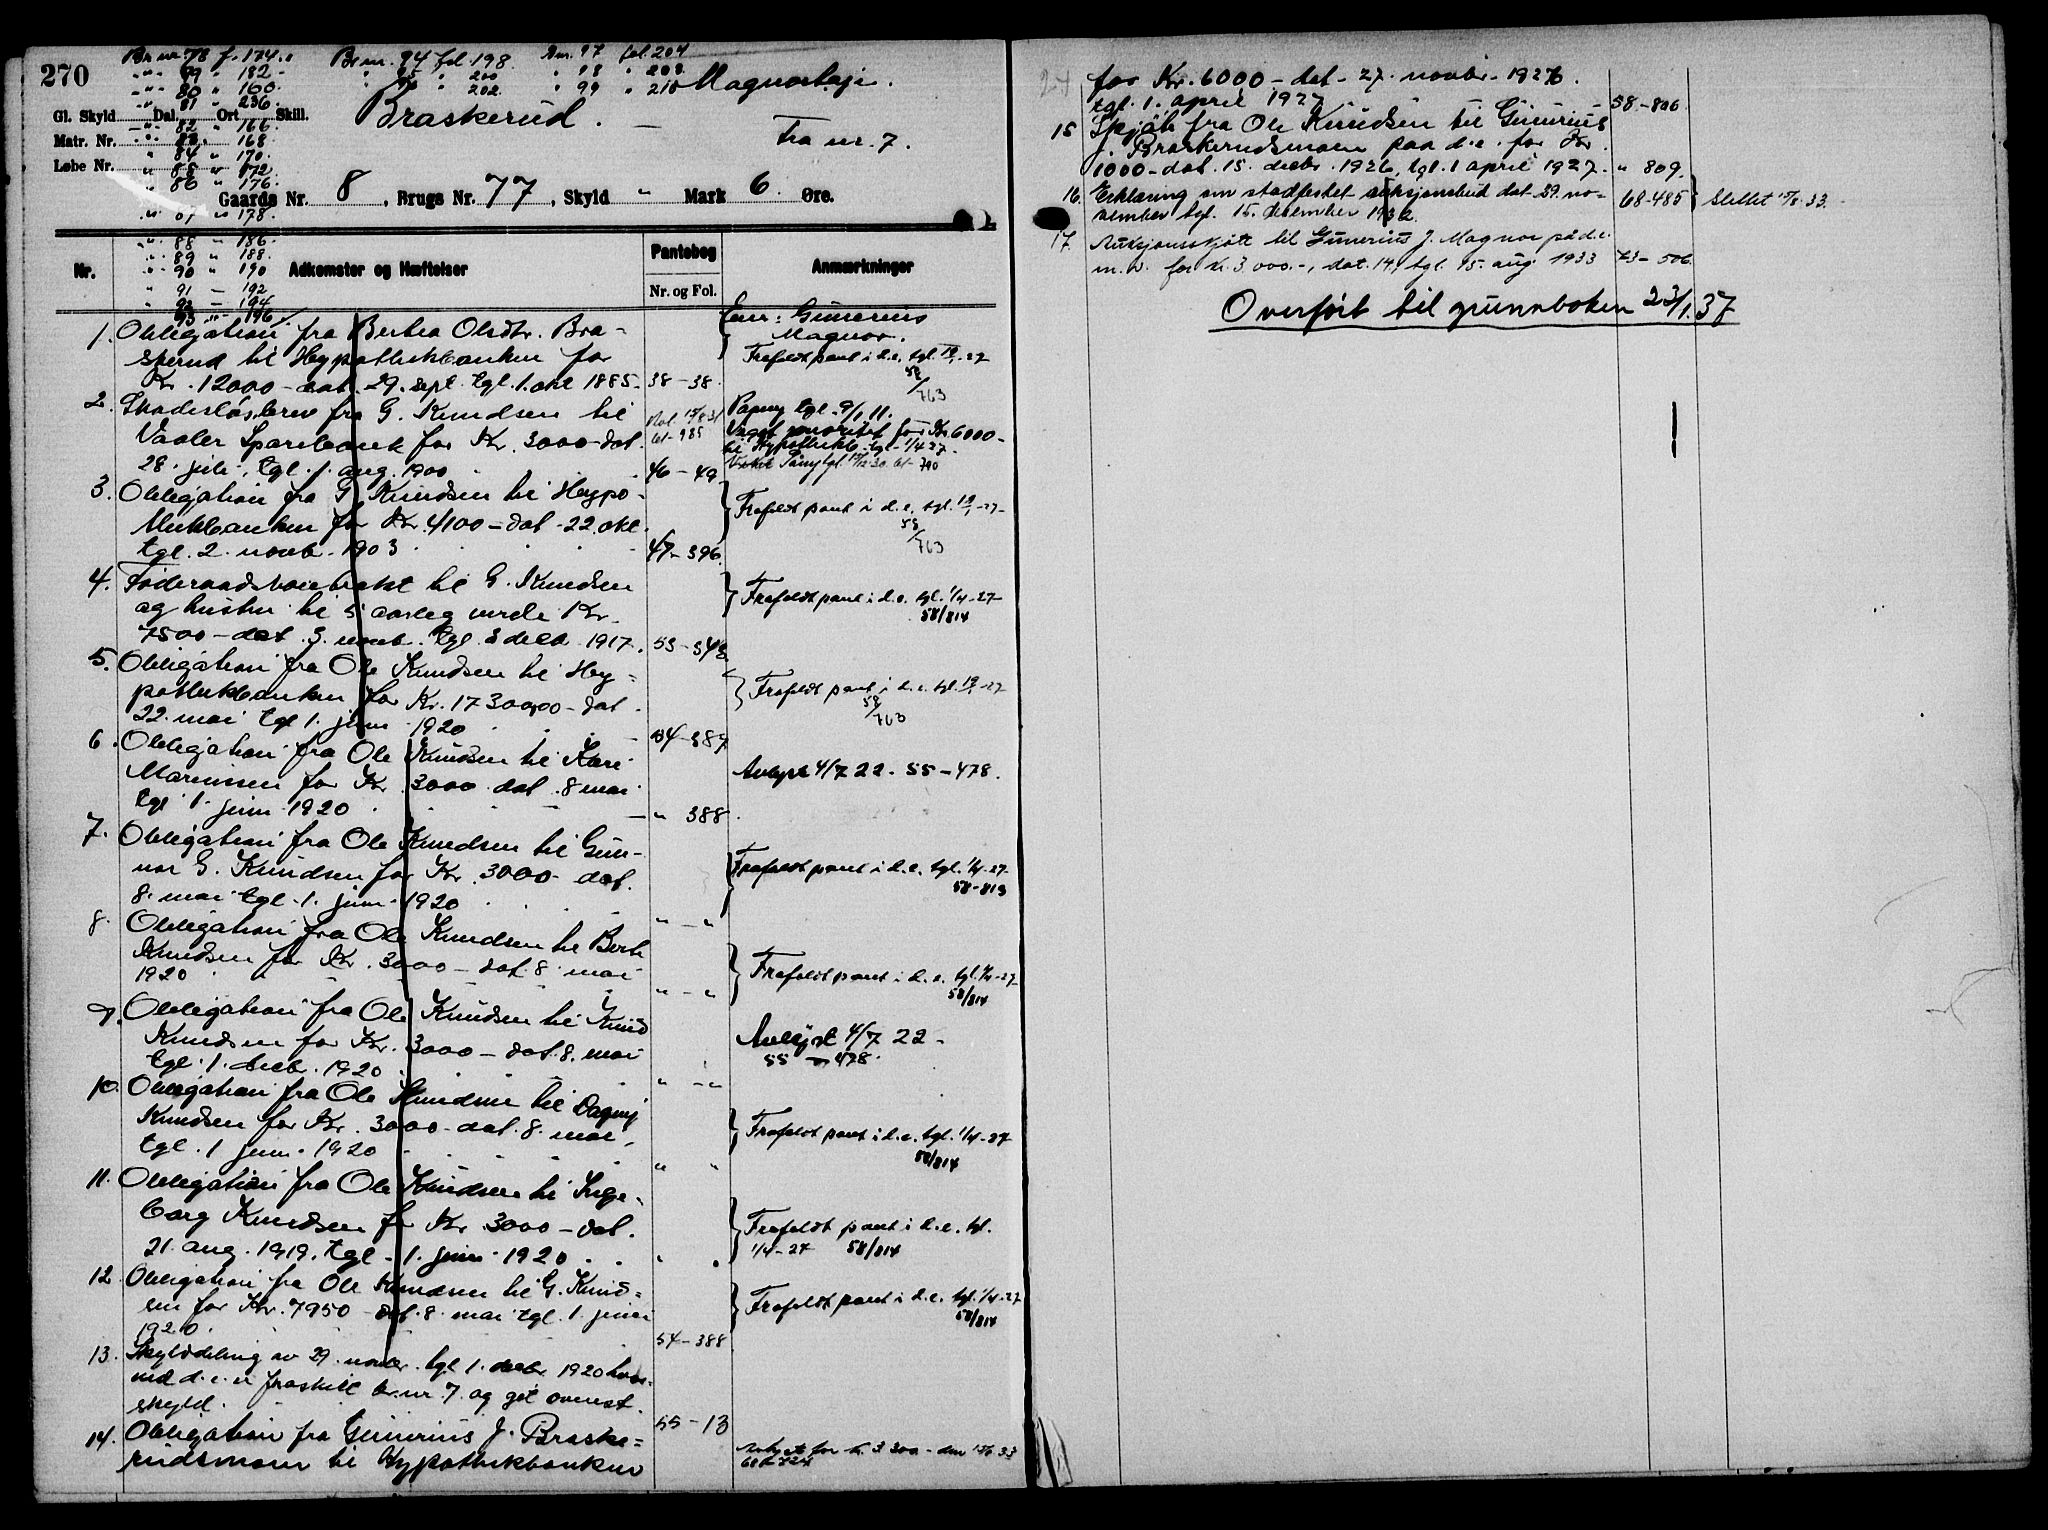 270
Br nr 78 f. 174.
" 79 " 182 -
" 80 " 160.
" 81 " 236.
" 82 " 166
" 83 " 168
" 84 " 170.
" 85 " 172
" 86 " 176.
" 87 " 178.
" 88 " 186
" 89 " 188.
" 90 " 190
" 91 - 192
" 92 - 194
93 " 196
Brnr. 94 fol. 198 Bnr. 97 fol. 204
" 95 " 200 " 98 " 208
" 96 " 202. " 99 " 210
Magnorhagi.
Gl. Skyld Dal. Ort Skill.
Matr. Nr.
Løbe Nr.
Braskerud. —
Fra nr. 7.
Gaards Nr. 8, Brugs Nr. 77, Skyld " Mark 6 Øre.
Nr. Adkomster og Hæftelser
Pantebog
Nr. og Fol.
Anmærkninger
Eier: Gunerius
Magnor.
1. Obligation fra Berthea Olsdtr. Bra-
skerud til Hypothekbanken for
Kr. 12000 - dat. 29. sept. tgl. 1. okt 1885. 38-38.
Frafaldt pant i d.e. tgl. 19/1-27
58/763
2. Skadesløsbrev fra G. Knudsen til
Vaaler Sparebank for Kr. 3000 - dat.
28. juli, tgl. 1. aug. 1900 46-49
61-985
Paany tgl. 9/1 11.
Veget prioritet for Kr 6000 -
til Hypothekb. tgl. 1/4 27.
Paany tgl. 61-790
3. Obligation fra G. Knudsen til Hypo-
thekbanken for Kr. 4100 - dat. 22. okt.
tgl. 2. novb. 1903 47-396.
Frafaldt pant i d.e. tgl. 19/1-27-
58/763
4. Føderaadskontrakt til G. Knudsen
og hustru til 5 aarlig verdi Kr.
7500 - dat. 3. novb. tgl. 3 decb. 1917. 53-548
Frafaldt pant i d.e. tgl. 1/4-27
58/814
5. Obligation fra Ole Knudsen til Hy-
pothekbanken for Kr. 17300,00 - dat.
22. mai tgl 1. juni 1920 54-387
Frafaldt pant i d.e. tgl. 19/1-27
58/763
6. Obligation fra Ole Knudsen til Kari
Marenusen for Kr. 3000 dat. 8 mai
tgl. 1. juni 1920 — " 388.
Avlyst 4/7 22. 55-478.
7. Obligation fra Ole Knudsen til Gun-
nar G. Knudsen for Kr. 3000 - dat.
8. mai tgl. 1. juni 1920 " - "
Frafaldt pant i d.e. tgl. 1/4-27
58-813
8. Obligation fra Ole Knudsen til Berth
Knudsen for Kr. 3000 - dat. 8. mai
1920 " - "
Frafaldt pant i d.e. tgl. 1/4-27
58/814
9. Obligation fra Ole Knudsen til Knud
Knudsen for Kr. 3000 - dat. 8. mai
tgl. 1. decb. 1920 " - "
Avlyst 4/7 22 -
55 - 478.
10. Obligation fra Ole Knudsen til Dagny
Knudsen for Kr. 3000 - dat. 8. mai,
tgl. 1 juni 1920 " "
Frafaldt pant i d.e. tgl. 1/4-27
58/814
11. Obligation fra Ole Knudsen til Inge-
borg Knudsen for Kr. 3000 - dat.
21. aug. 1919, tgl. 1. juni 1920 " "
Frafaldt pant i d.e. tgl.
1/4-27 58/814
12. Obligation fra Ole Knudsen til G. Knud=
sen for Kr. 7950 - dat. 8. mai tgl. 1. juni
1920. 54-388
Frafaldt pant i d.e. tgl. 1/4-27
58/814
13. Skylddeling av 29. novbr. tgl 1. decbr. 1920 hvor-
ved d.e. er fraskilt br. nr. 7. og git ovenst.
skyld. 55-13
14. Obligation fra Gunerius J. Braske=
rudsmoen til Hypothekbanken
Avlyst for kr. 3 300 - den 15/6 33
for Kr. 6000 - dat. 27. novbr. 1926.
tgl. 1. april 1927 58-806
15 Skjøte fra Ole Knudsen til Gunerius
J. Braskerudsmoen paa d.e. for Kr.
1000 - dat. 15. decbr. 1926, tgl. 1 april 1927. " 809.
16. Erklæring om stadfestet auksjonsbud dat. 29. no-
vember tgl. 15. desember 1932. 68-485
Slettet 15/8. 33.
17. Auksjonsskjøte til Gunerius J. Magnor på d.e.
m.v. for kr. 3.000.-, dat. 14. tgl. 15. aug. 1933 73-506.
Overført til grunnboken 23/1. 37